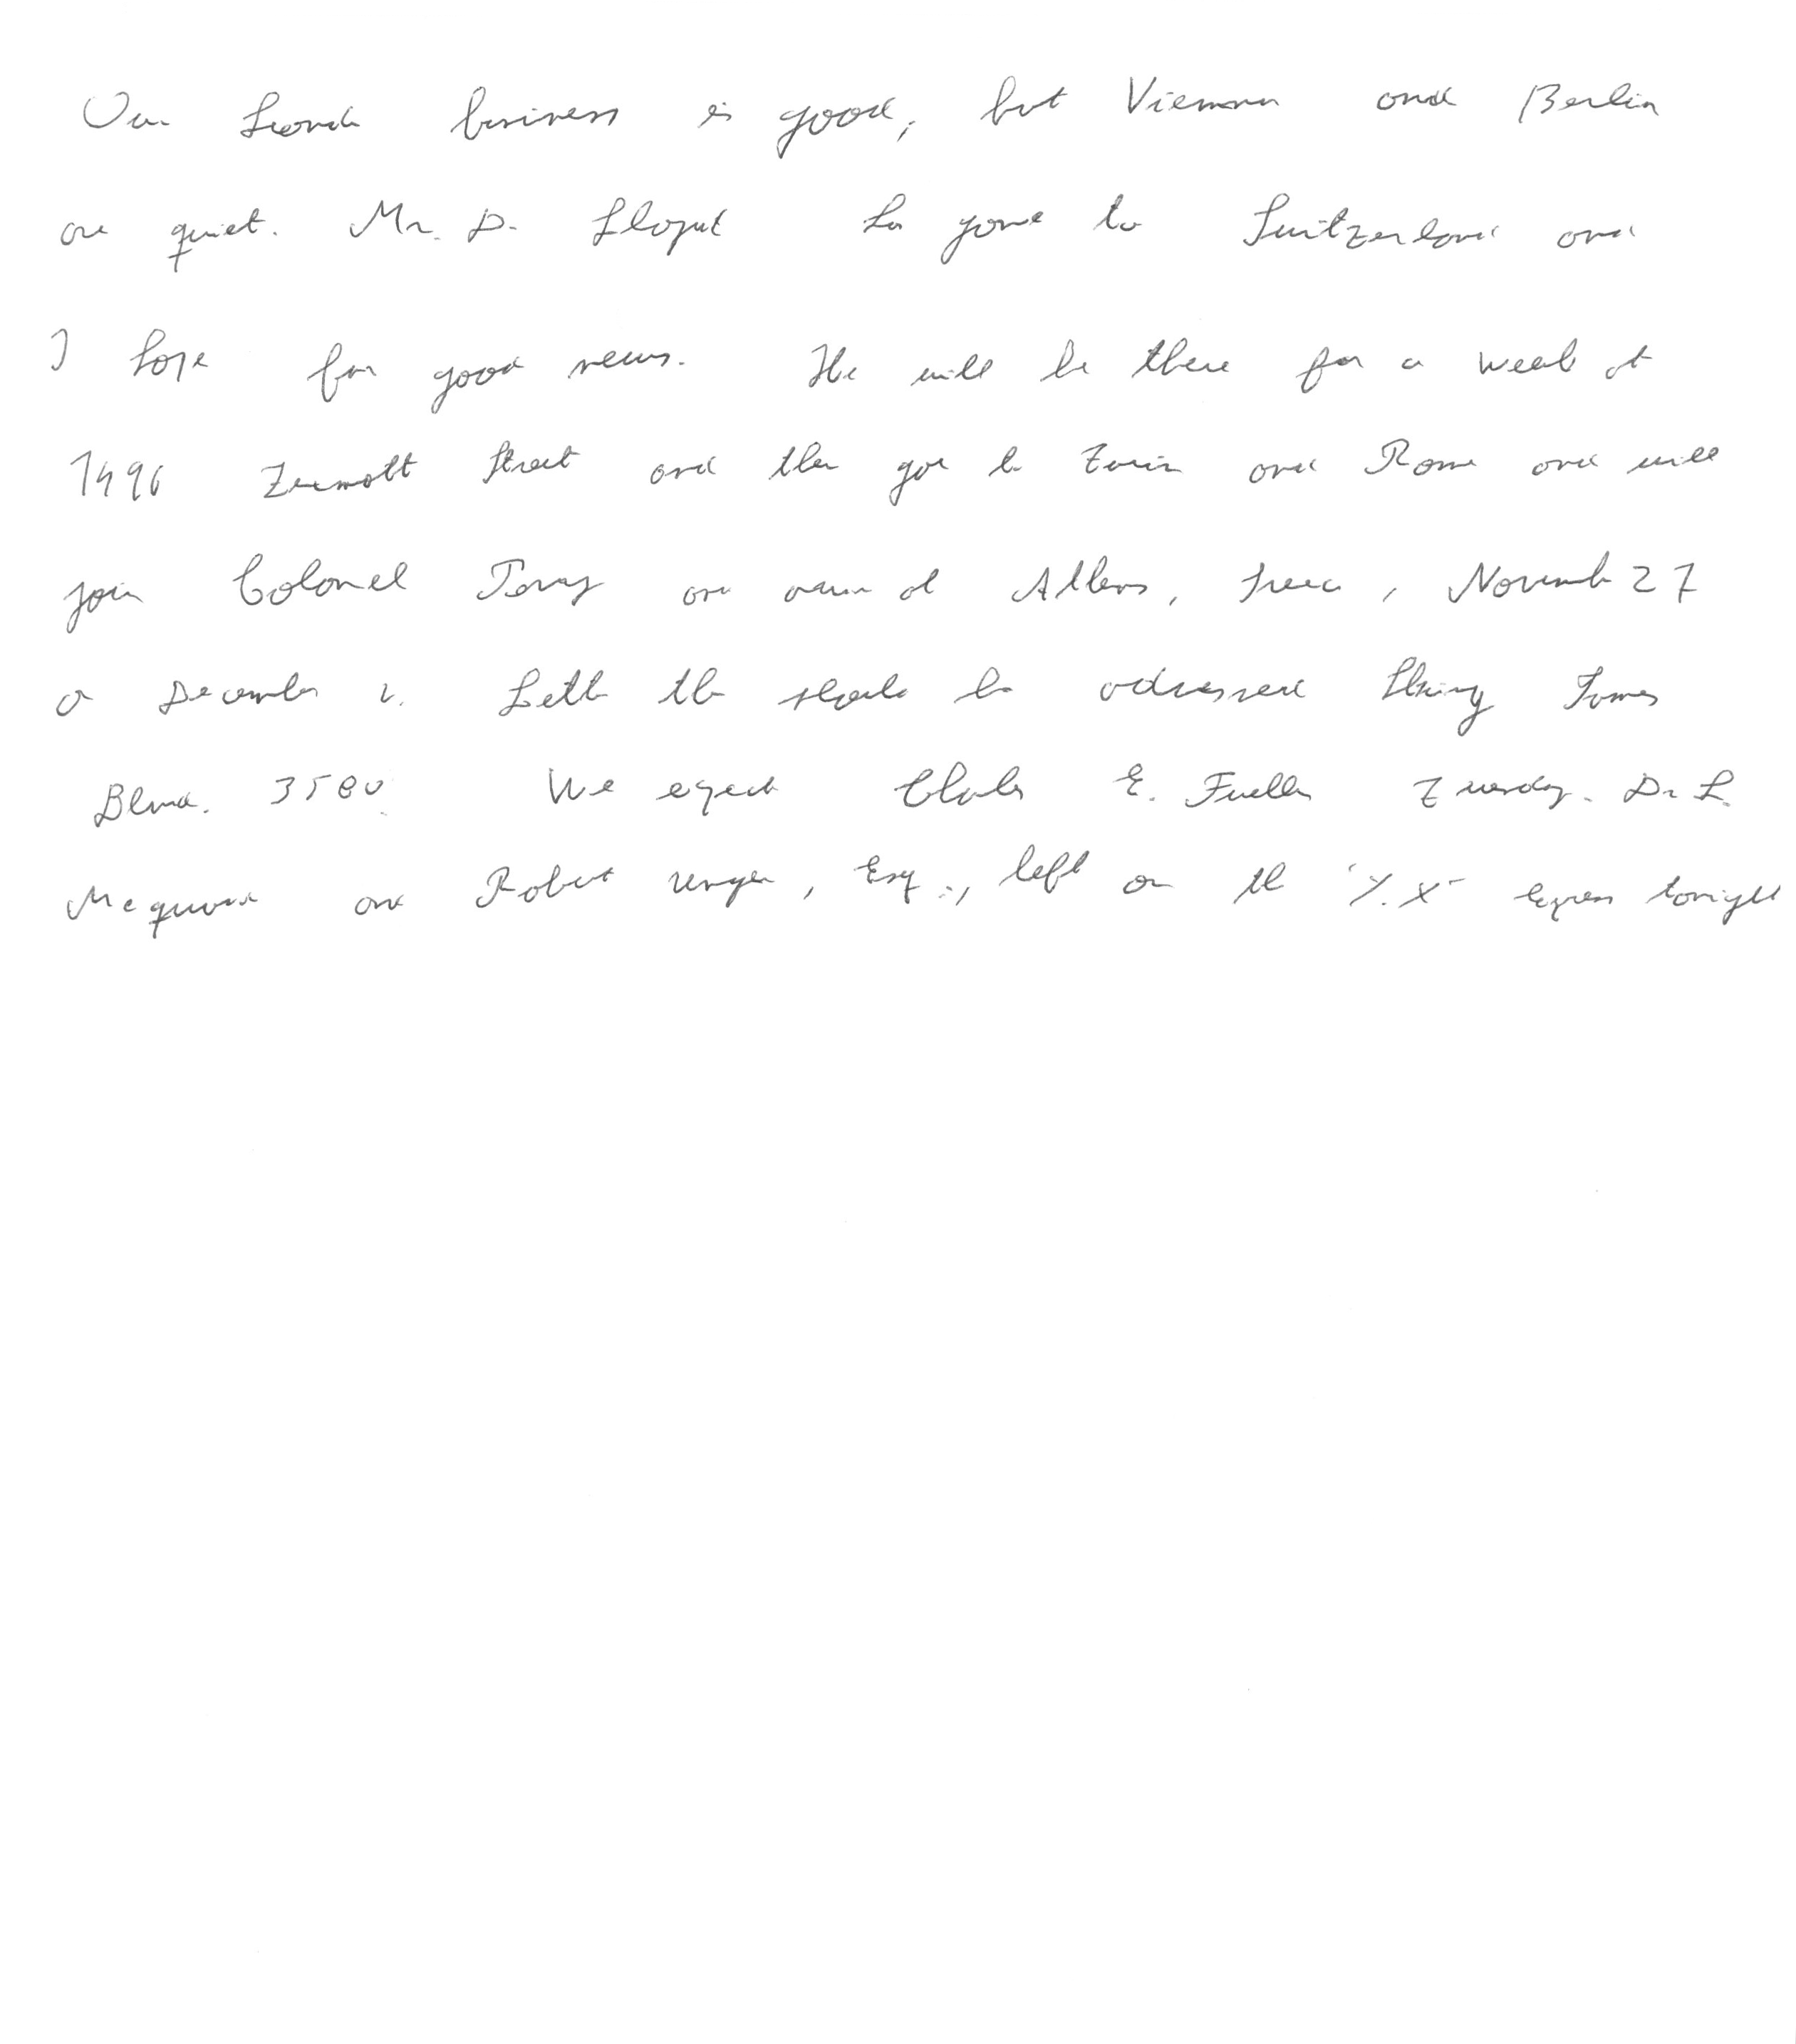 Our London business is good, but Vienna and Berlin
are quiet. Mr. D. Lloyd has gone to Switzerland and
I hope for good news. He will be there for a week at
1496 Zermott Street and then goes to Turin and Rome and will
join Colonel Parry and arrive at Athens, Greece, November 27
or December 2. Letters there should be addressed King James
Blvd. 3580. We expect Charles E. Fuller Tuesday. Dr. L.
McQuaid and Robert Unger, Esq., left on the "Y.X" Express tonight